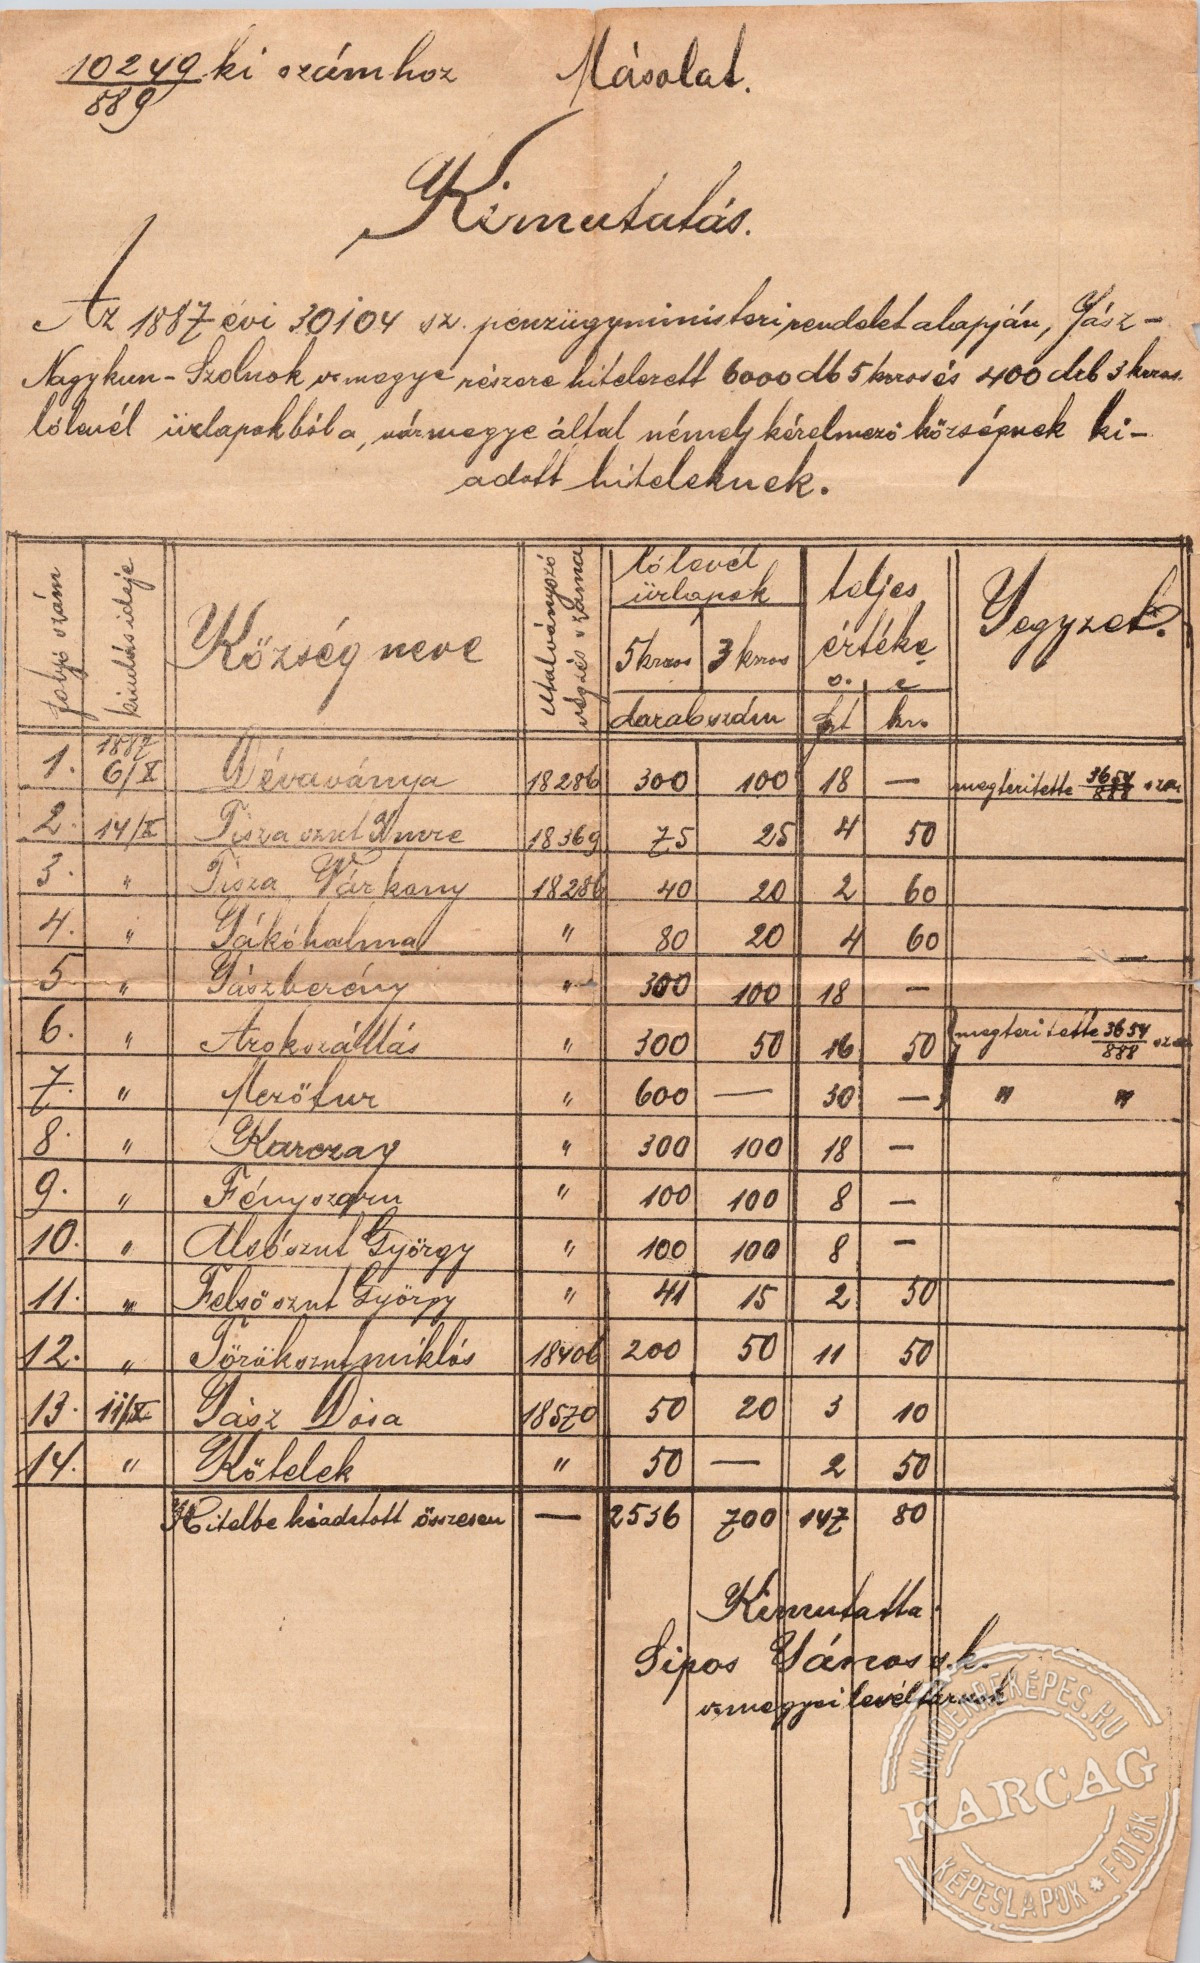 10249/889 ki számhoz Másolat.
Kimutatás.
Az 1887 évi 30104 sz. penzügyministeri rendelet alapján, Jász-
Nagykun-Szolnok vmegye részere hitelezett 6000 db 5 kros és 400 drb 3 kros
lólevél ürlapokból a, vármegye által némely kérelmező községnek ki-
adott hiteleknek.
folyó szám | kiutás ideje | Község neve | Utalványozó végzés száma | lólevél ürlapok | teljes értéke | Jegyzet.
5 kros | 3 kros | o. é.
darabszám | frt | kr.
1. | 1887 6/X | Dévaványa | 18286 | 300 | 100 | 18 | — | megteritette 3654/888 szám
2. | 14/X | Tisza sznt Imre | 18369 | 75 | 25 | 4 | 50
3. | " | Tisza Várkony | 18286 | 40 | 20 | 2 | 60
4. | " | Jákóhalma | " | 80 | 20 | 4 | 60
5. | " | Jászberény | " | 300 | 100 | 18 | —
6. | " | Árokszállás | " | 300 | 50 | 16 | 50 | megteritette 3654/888 szám
7. | " | Mezőtur | " | 600 | — | 30 | — | " "
8. | " | Karczag | " | 300 | 100 | 18 | —
9. | " | Fényszaru | " | 100 | 100 | 8 | —
10. | " | Alsósznt György | " | 100 | 100 | 8 | —
11. | " | Felsősznt György | " | 41 | 15 | 2 | 50
12. | " | Törökszntmiklós | 18406 | 200 | 50 | 11 | 50
13. | 11/X | Jász Dósa | 18570 | 50 | 20 | 3 | 10
14. | " | Kőtelek | " | 50 | — | 2 | 50
Hitelbe kiadatott összesen | — | 2536 | 700 | 147 | 80
Kimutatta.
Sipos János s.k.
vmegyei levéltárnok
MINDENREKÉPES.HU
KARCAG
KÉPESLAPOK * FOTÓK